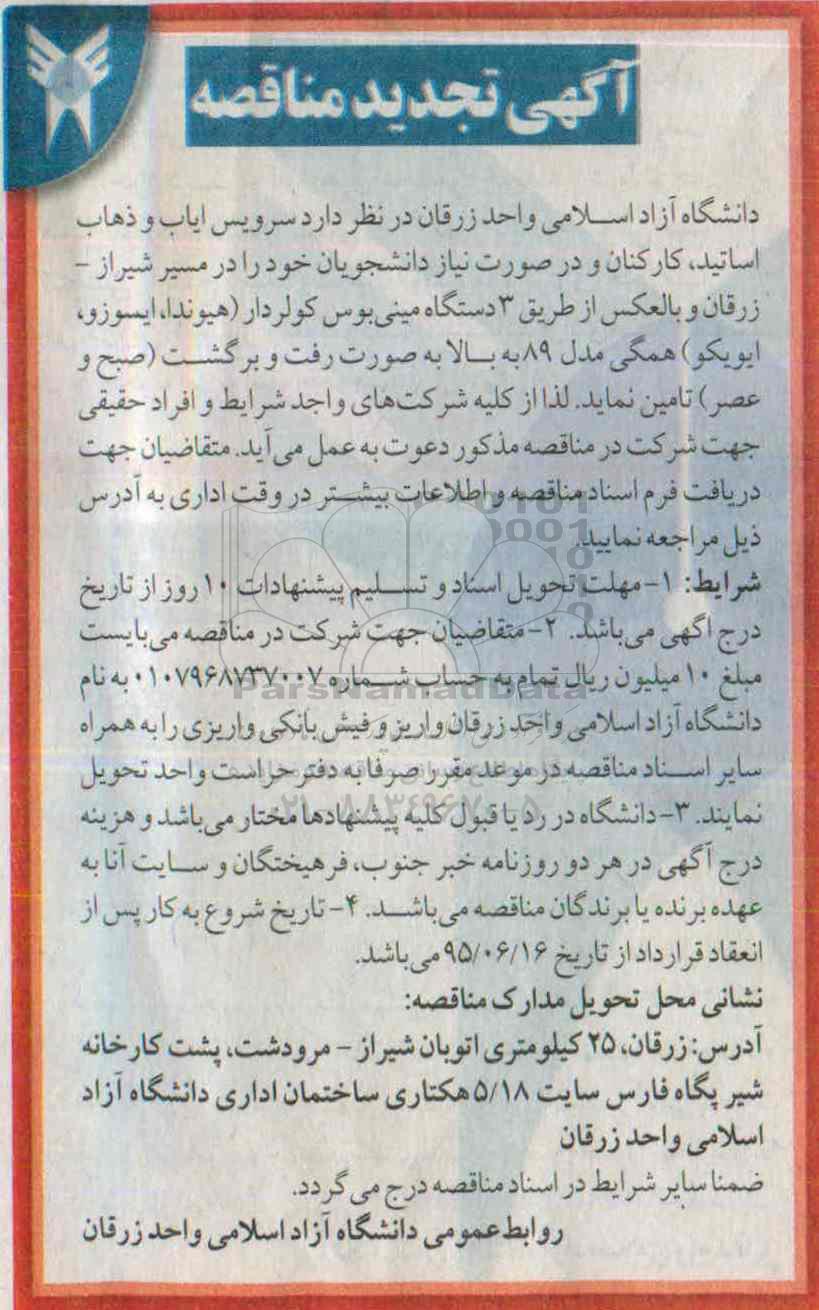 آگهی تجدید مناقصه
دانشگاه آزاد اسلامی واحد زرقان در نظر دارد سرویس ایاب و ذهاب
اساتید، کارکنان و در صورت نیاز دانشجویان خود را در مسیر شیراز -
زرقان و بالعکس از طریق ۳ دستگاه مینی‌بوس کولردار (هیوندا، ایسوزو،
ایویکو) همگی مدل ۸۹ به بالا به صورت رفت و برگشت (صبح و
عصر) تامین نماید. لذا از کلیه شرکت‌های واجد شرایط و افراد حقیقی
جهت شرکت در مناقصه مذکور دعوت به عمل می‌آید. متقاضیان جهت
دریافت فرم اسناد مناقصه و اطلاعات بیشتر در وقت اداری به آدرس
ذیل مراجعه نمایید.
شرایط: ۱- مهلت تحویل اسناد و تسلیم پیشنهادات ۱۰ روز از تاریخ
درج اگهی می‌باشد. ۲- متقاضیان جهت شرکت در مناقصه می‌بایست
مبلغ ۱۰ میلیون ریال تمام به حساب شماره ۰۱۰۷۹۶۸۷۳۷۰۰۷ به نام
دانشگاه آزاد اسلامی واحد زرقان واریز و فیش بانکی واریزی را به همراه
سایر اسناد مناقصه در موعد مقرر صرفا به دفتر حراست واحد تحویل
نمایند. ۳- دانشگاه در رد یا قبول کلیه پیشنهادها مختار می‌باشد و هزینه
درج آگهی در هر دو روزنامه خبر جنوب، فرهیختگان و سایت آنا به
عهده برنده یا برندگان مناقصه می‌باشد. ۴- تاریخ شروع به کار پس از
انعقاد قرارداد از تاریخ ۹۵/۰۶/۱۶ می‌باشد.
نشانی محل تحویل مدارک مناقصه:
آدرس: زرقان، ۲۵ کیلومتری اتوبان شیراز - مرودشت، پشت کارخانه
شیر پگاه فارس سایت ۵/۱۸ هکتاری ساختمان اداری دانشگاه آزاد
اسلامی واحد زرقان
ضمنا سایر شرایط در اسناد مناقصه درج می‌گردد.
روابط عمومی دانشگاه آزاد اسلامی واحد زرقان
ParsNamadData
۰۲۱-۸۸۳۴۹۶۷۰-۵